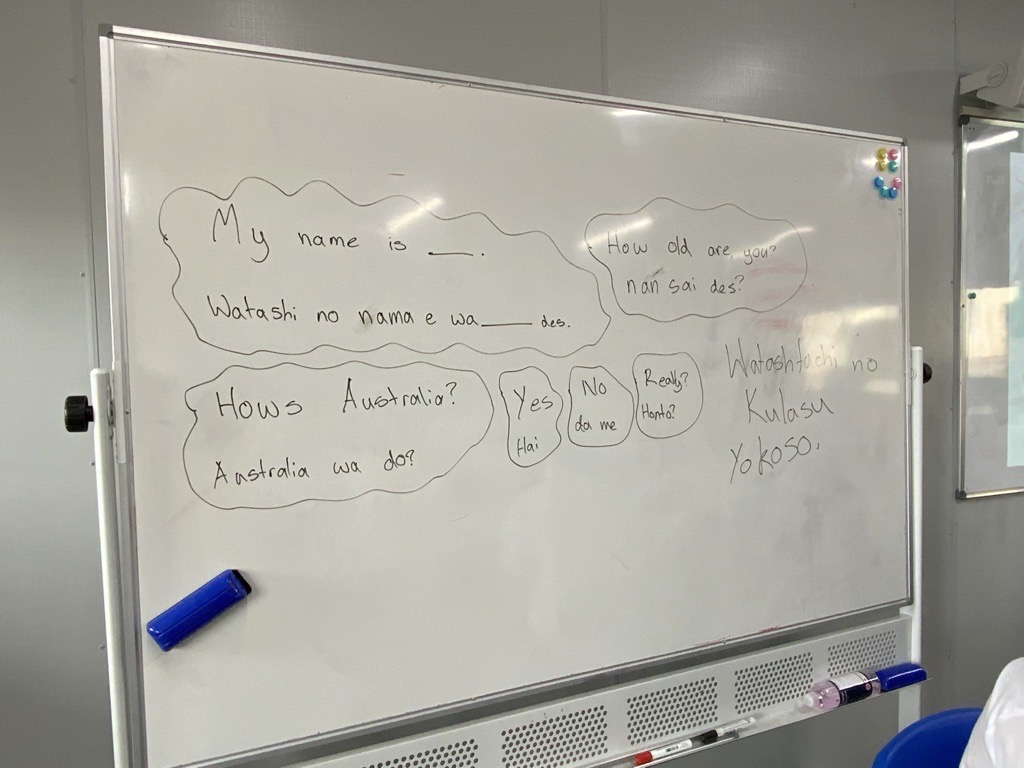 My name is ___.
Watashi no nama e wa ___ des.
How old are you?
nan sai des?
Hows Australia?
Australia wa do?
Yes
Hai
No
da me
Really?
Honto?
Watashtachi no
Kulasu
Yokoso.